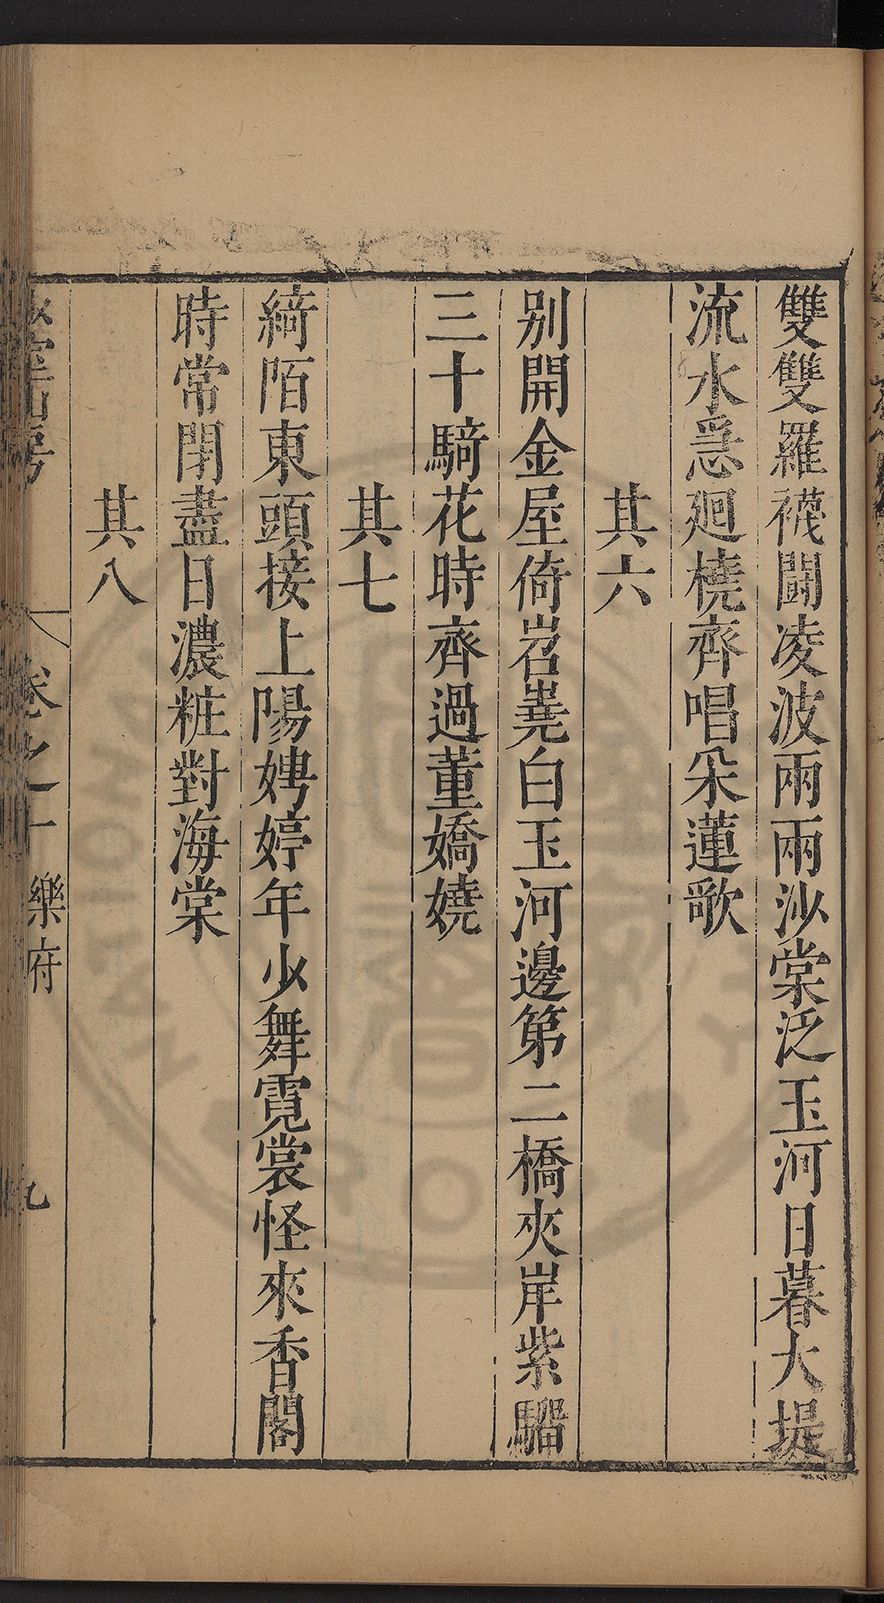 雙雙羅襪鬬凌波兩兩沙棠泛玉河日暮大堤
流水急廻橈齊唱朵蓮歌
其六
別開金屋倚岧嶤白玉河邊第二橋夾岸紫騮
三十騎花時齊過董嬌嬈
其七
綺陌東頭接上陽娉婷年少舞霓裳怪來香閣
時常閉盡日濃粧對海棠
其八
山房
卷之十
樂府
九